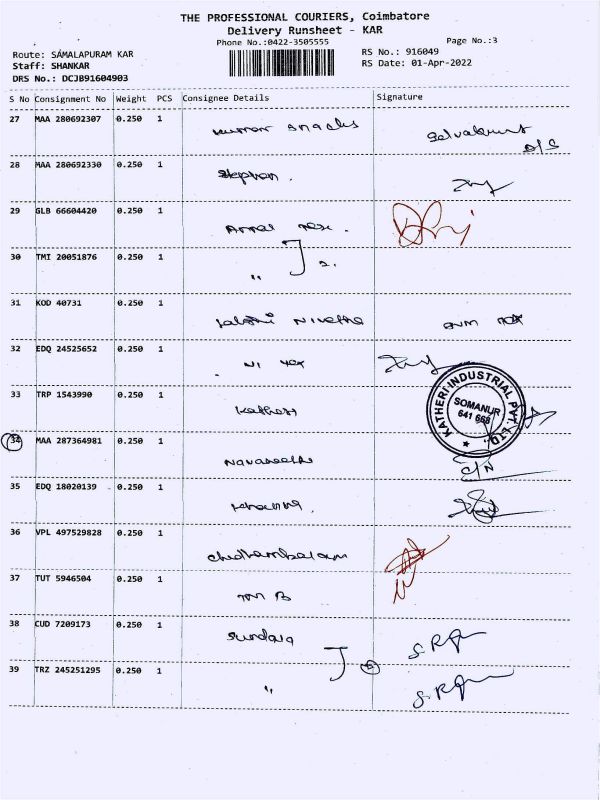 THE PROFESSIONAL COURIERS, Coimbatore
Delivery Runsheet - KAR
Phone No.:0422-3505555
Page No.:3
Route: SAMALAPURAM KAR
RS No.: 916049
Staff: SHANKAR
RS Date: 01-Apr-2022
DRS No.: DCJB91604903
S No Consignment No Weight PCS Consignee Details Signature
27 MAA 280692307 0.250 1
28 MAA 280692330 0.250 1 Stephan.
29 GLB 66604420 0.250 1
30 TMI 20051876 0.250 1 " 2.
31 KOD 40731 0.250 1 Nivetha
32 EDQ 24525652 0.250 1
33 TRP 1543990 0.250 1
KATHERI INDUSTRIAL PVT. LTD.,
SOMANUR
641 668
34 MAA 287364981 0.250 1 C/N
35 EDQ 18020139 0.250 1
36 VPL 497529828 0.250 1 Chidhambaram
37 TUT 5946504 0.250 1 TM B
38 CUD 7209173 0.250 1 Sundara
39 TRZ 245251295 0.250 1 " 2